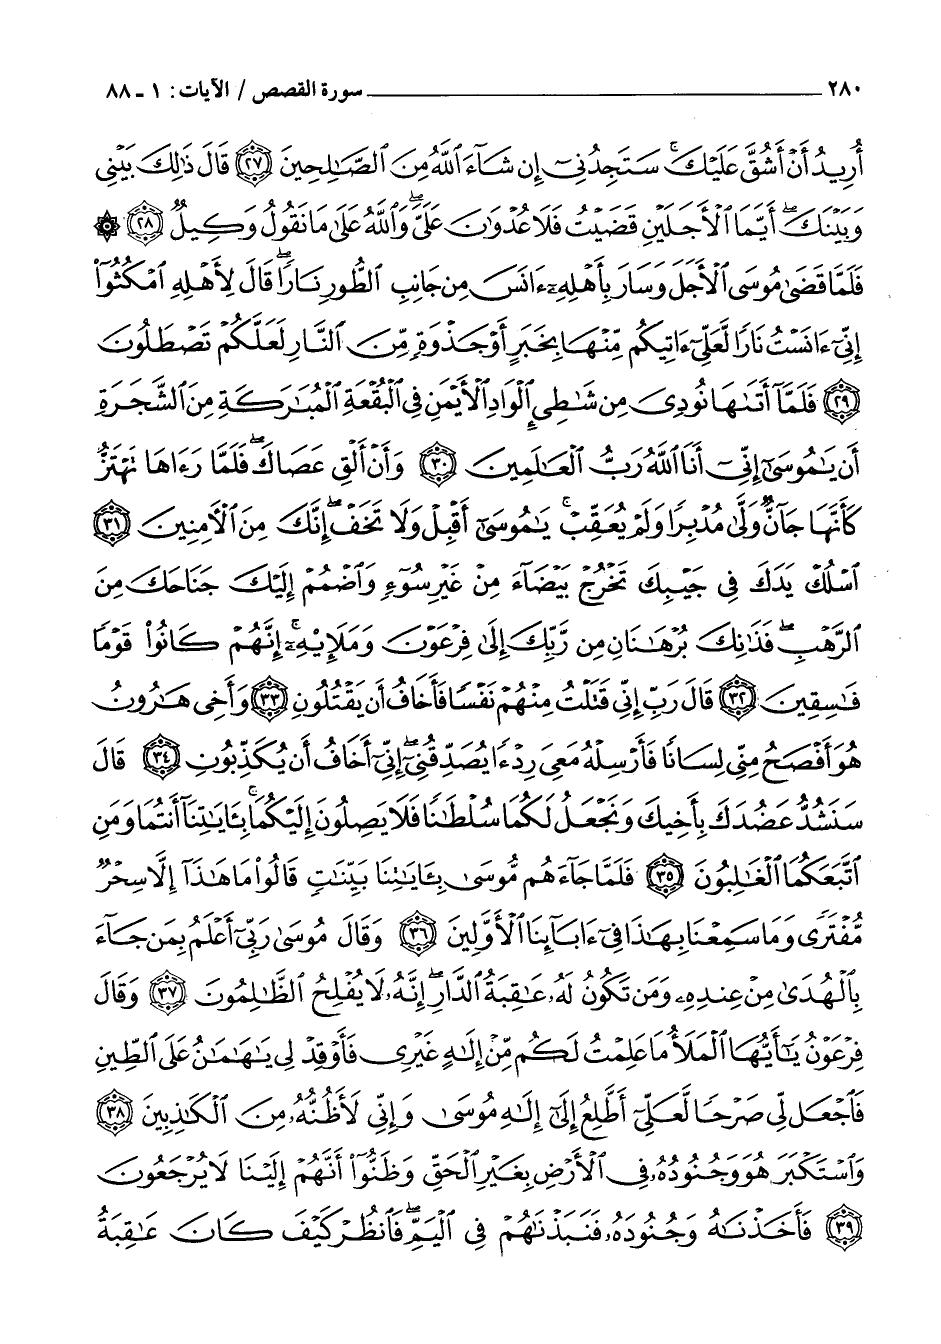 ٢٨٠ سورة القصص / الآيات: ١ - ٨٨
أُرِيدُ أَنْ أَشُقَّ عَلَيْكَ ۚ سَتَجِدُنِىٓ إِن شَآءَ ٱللَّهُ مِنَ ٱلصَّـٰلِحِينَ ﴿٢٧﴾ قَالَ ذَٰلِكَ بَيْنِى
وَبَيْنَكَ ۖ أَيَّمَا ٱلْأَجَلَيْنِ قَضَيْتُ فَلَا عُدْوَٰنَ عَلَىَّ ۖ وَٱللَّهُ عَلَىٰ مَا نَقُولُ وَكِيلٌ ﴿٢٨﴾ ۞
فَلَمَّا قَضَىٰ مُوسَى ٱلْأَجَلَ وَسَارَ بِأَهْلِهِۦٓ ءَانَسَ مِن جَانِبِ ٱلطُّورِ نَارًا ۖ قَالَ لِأَهْلِهِ ٱمْكُثُوٓا۟
إِنِّىٓ ءَانَسْتُ نَارًا لَّعَلِّىٓ ءَاتِيكُم مِّنْهَا بِخَبَرٍ أَوْ جَذْوَةٍ مِّنَ ٱلنَّارِ لَعَلَّكُمْ تَصْطَلُونَ
﴿٢٩﴾ فَلَمَّآ أَتَىٰهَا نُودِىَ مِن شَـٰطِئِ ٱلْوَادِ ٱلْأَيْمَنِ فِى ٱلْبُقْعَةِ ٱلْمُبَـٰرَكَةِ مِنَ ٱلشَّجَرَةِ
أَن يَـٰمُوسَىٰٓ إِنِّىٓ أَنَا ٱللَّهُ رَبُّ ٱلْعَـٰلَمِينَ ﴿٣٠﴾ وَأَنْ أَلْقِ عَصَاكَ ۖ فَلَمَّا رَءَاهَا تَهْتَزُّ
كَأَنَّهَا جَآنٌّ وَلَّىٰ مُدْبِرًا وَلَمْ يُعَقِّبْ ۚ يَـٰمُوسَىٰٓ أَقْبِلْ وَلَا تَخَفْ ۖ إِنَّكَ مِنَ ٱلْـَٔامِنِينَ ﴿٣١﴾
ٱسْلُكْ يَدَكَ فِى جَيْبِكَ تَخْرُجْ بَيْضَآءَ مِنْ غَيْرِ سُوٓءٍ وَٱضْمُمْ إِلَيْكَ جَنَاحَكَ مِنَ
ٱلرَّهْبِ ۖ فَذَٰنِكَ بُرْهَـٰنَانِ مِن رَّبِّكَ إِلَىٰ فِرْعَوْنَ وَمَلَإِي۟هِۦٓ ۚ إِنَّهُمْ كَانُوا۟ قَوْمًا
فَـٰسِقِينَ ﴿٣٢﴾ قَالَ رَبِّ إِنِّى قَتَلْتُ مِنْهُمْ نَفْسًا فَأَخَافُ أَن يَقْتُلُونِ ﴿٣٣﴾ وَأَخِى هَـٰرُونُ
هُوَ أَفْصَحُ مِنِّى لِسَانًا فَأَرْسِلْهُ مَعِىَ رِدْءًا يُصَدِّقُنِىٓ ۖ إِنِّىٓ أَخَافُ أَن يُكَذِّبُونِ ﴿٣٤﴾ قَالَ
سَنَشُدُّ عَضُدَكَ بِأَخِيكَ وَنَجْعَلُ لَكُمَا سُلْطَـٰنًا فَلَا يَصِلُونَ إِلَيْكُمَا ۚ بِـَٔايَـٰتِنَآ أَنتُمَا وَمَنِ
ٱتَّبَعَكُمَا ٱلْغَـٰلِبُونَ ﴿٣٥﴾ فَلَمَّا جَآءَهُم مُّوسَىٰ بِـَٔايَـٰتِنَا بَيِّنَـٰتٍ قَالُوا۟ مَا هَـٰذَآ إِلَّا سِحْرٌ
مُّفْتَرًى وَمَا سَمِعْنَا بِهَـٰذَا فِىٓ ءَابَآئِنَا ٱلْأَوَّلِينَ ﴿٣٦﴾ وَقَالَ مُوسَىٰ رَبِّىٓ أَعْلَمُ بِمَن جَآءَ
بِٱلْهُدَىٰ مِنْ عِندِهِۦ وَمَن تَكُونُ لَهُۥ عَـٰقِبَةُ ٱلدَّارِ ۖ إِنَّهُۥ لَا يُفْلِحُ ٱلظَّـٰلِمُونَ ﴿٣٧﴾ وَقَالَ
فِرْعَوْنُ يَـٰٓأَيُّهَا ٱلْمَلَأُ مَا عَلِمْتُ لَكُم مِّنْ إِلَـٰهٍ غَيْرِى فَأَوْقِدْ لِى يَـٰهَـٰمَـٰنُ عَلَى ٱلطِّينِ
فَٱجْعَل لِّى صَرْحًا لَّعَلِّىٓ أَطَّلِعُ إِلَىٰٓ إِلَـٰهِ مُوسَىٰ وَإِنِّى لَأَظُنُّهُۥ مِنَ ٱلْكَـٰذِبِينَ ﴿٣٨﴾
وَٱسْتَكْبَرَ هُوَ وَجُنُودُهُۥ فِى ٱلْأَرْضِ بِغَيْرِ ٱلْحَقِّ وَظَنُّوٓا۟ أَنَّهُمْ إِلَيْنَا لَا يُرْجَعُونَ
﴿٣٩﴾ فَأَخَذْنَـٰهُ وَجُنُودَهُۥ فَنَبَذْنَـٰهُمْ فِى ٱلْيَمِّ ۖ فَٱنظُرْ كَيْفَ كَانَ عَـٰقِبَةُ